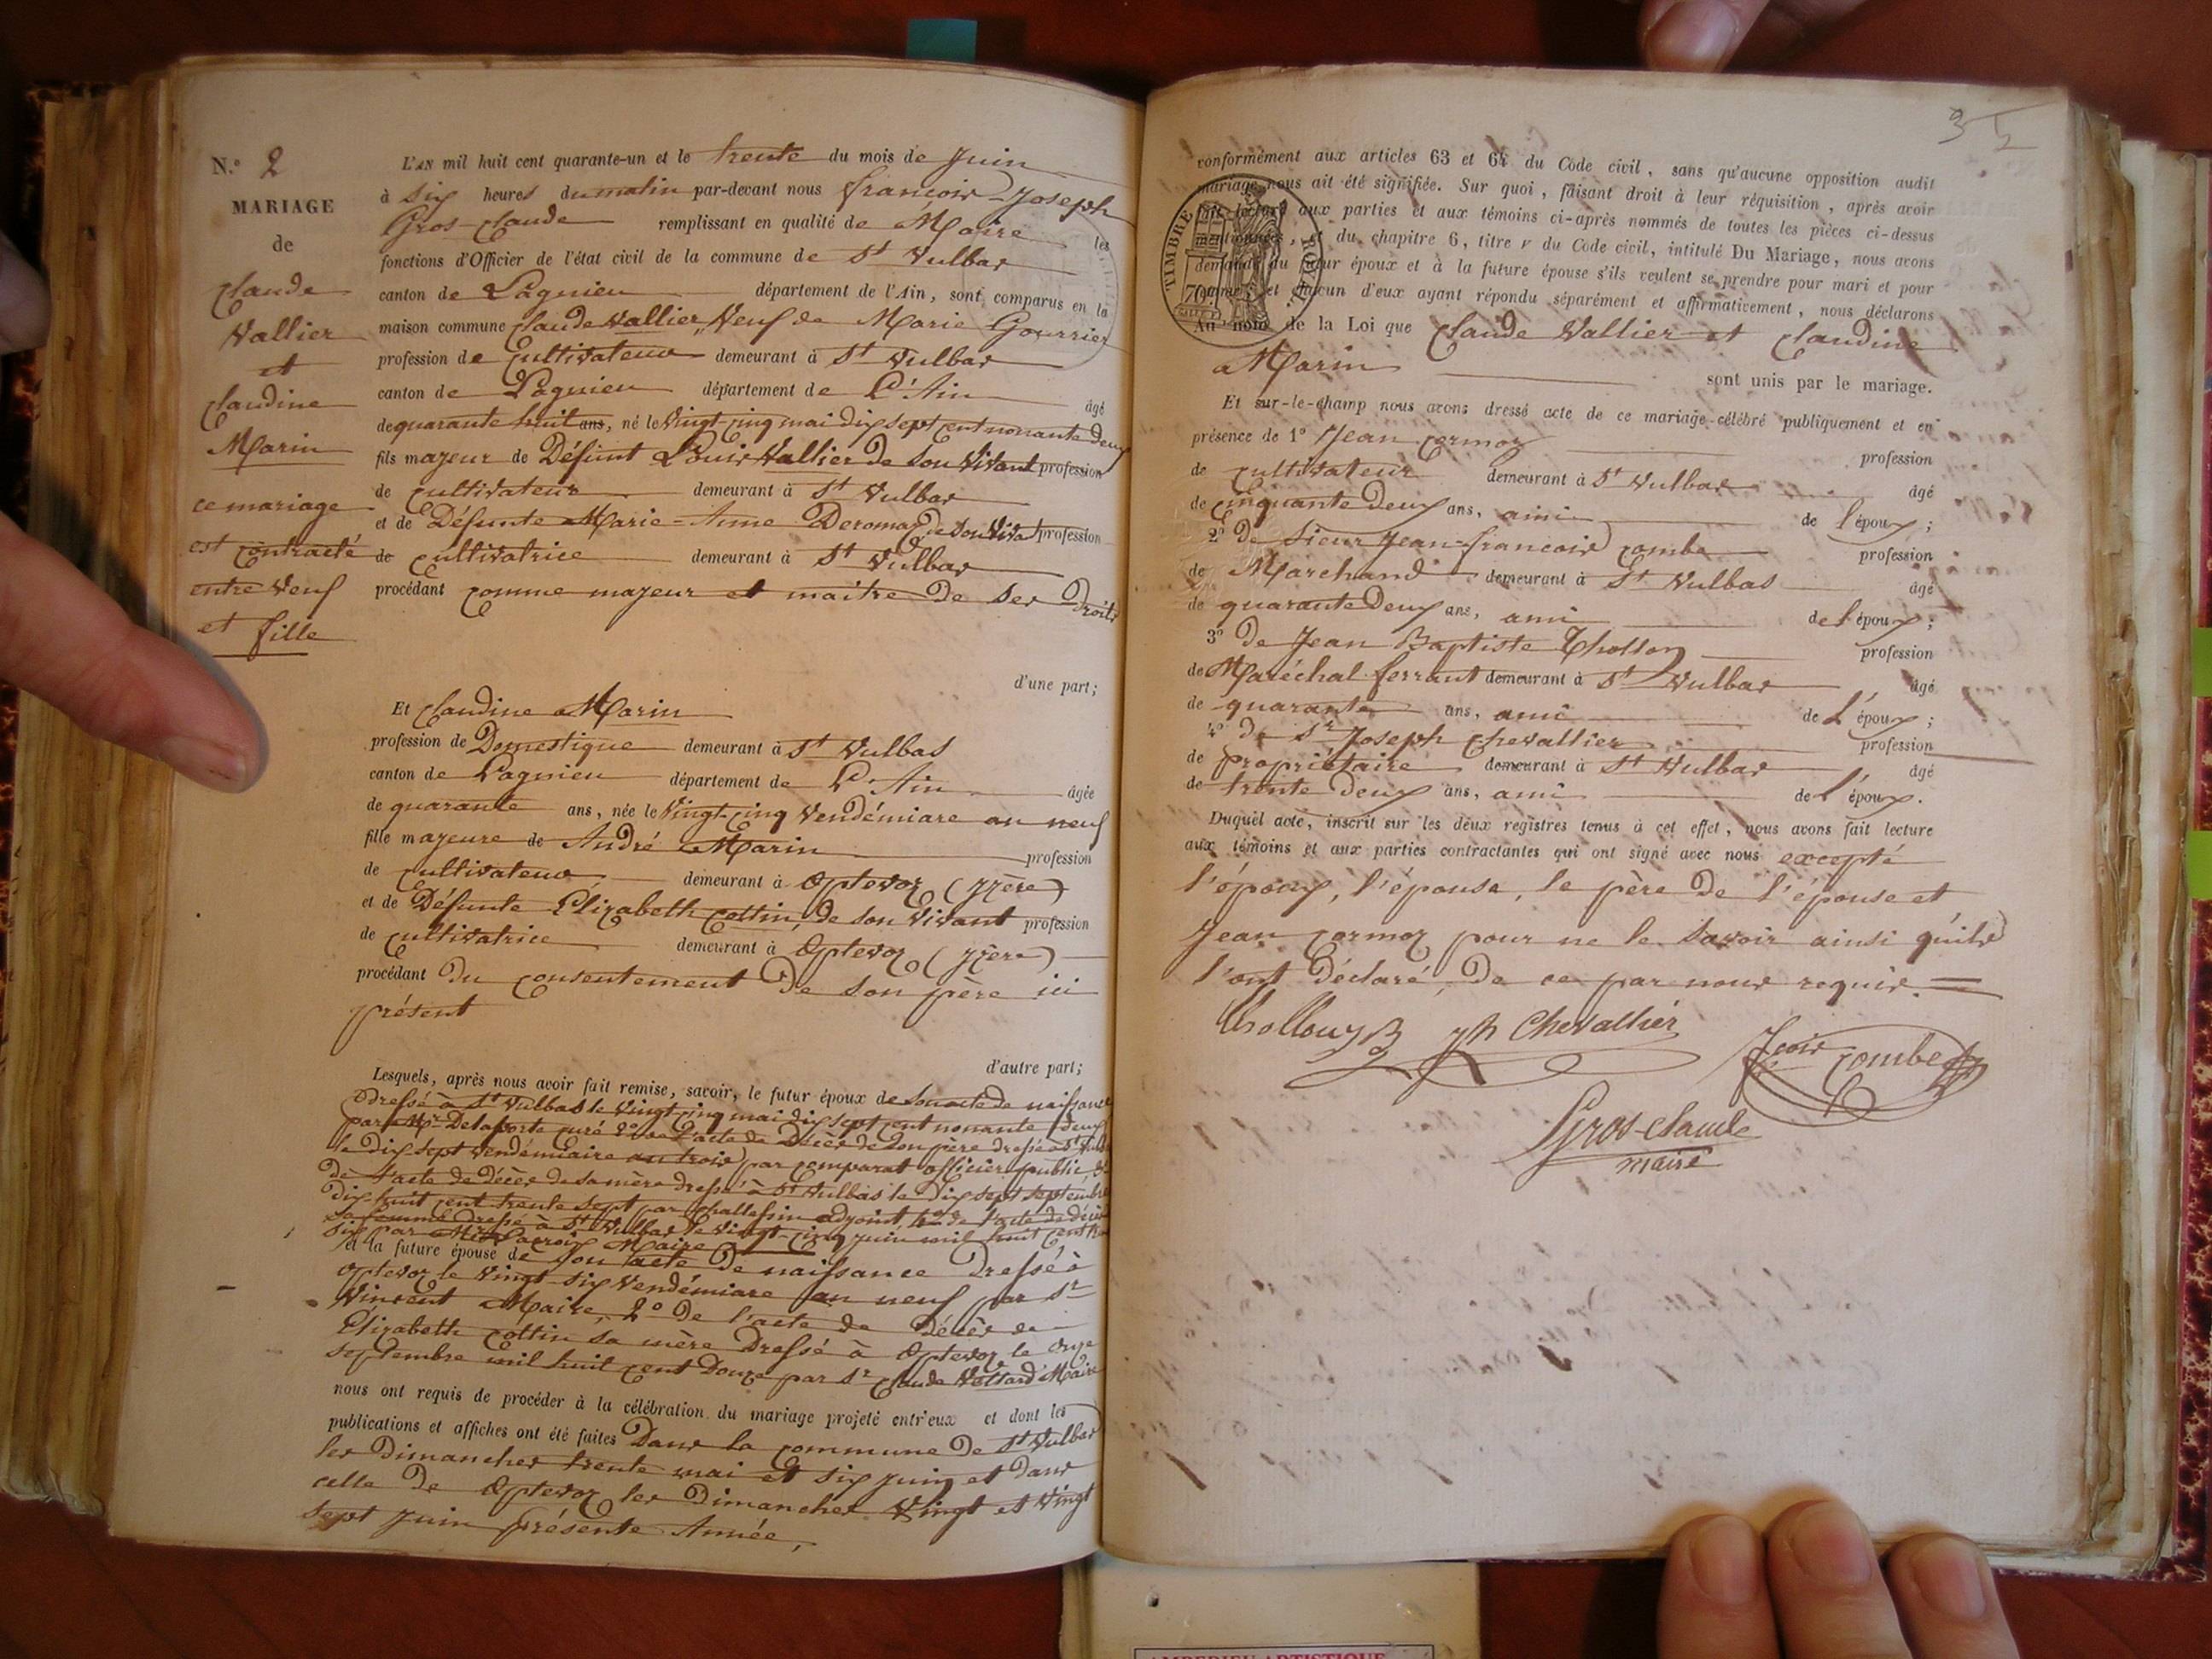 N.º 2
MARIAGE
de
Claude
Vallier
et
Claudine
Marin
ce mariage
est contracté
entre Veuf
et fille
L'AN mil huit cent quarante-un et le trente du mois de Juin
à Six heures du matin par-devant nous francois-Joseph
Gros-Claude remplissant en qualité de Maire les
fonctions d'Officier de l'état civil de la commune de St Vulbas
canton de Lagnieu département de l'Ain, sont comparus en la
maison commune Claude Vallier, Veuf de Marie Gourrier
profession de Cultivateur demeurant à St Vulbas
canton de Lagnieu département de L'Ain âgé
de quarante huit ans, né le Vingt-cinq mai dix sept cent nonante deux
fils majeur de Défunt Louis Vallier de Son Vivant profession
de Cultivateur demeurant à St Vulbas
et de Défunte Marie-Anne Deromas de Son Viva profession
de Cultivatrice demeurant à St Vulbas
procédant comme majeur et maitre de Ses Droits
d'une part;
Et Claudine Marin
profession de Domestique demeurant à St Vulbas
canton de Lagnieu département de L'Ain âgée
de quarante ans, née le Vingt-cinq Vendémiare an neuf
fille majeure de André Marin profession
de Cultivateur demeurant à Optevoz (Isère)
et de Défunte Elizabeth Cottin, de Son Vivant profession
de Cultivatrice demeurant à Optevoz (Isère)
procédant du consentement de Son père ici
présent
d'autre part;
Lesquels, après nous avoir fait remise, savoir, le futur époux de Son acte de naissance
Dressé à St Vulbas le Vingt cinq mai dix sept cent nonante deux
par Mr Delaporte curé 2º de l'acte de Décès de Son père dressé à St Vulbas
le dix sept Vendémiaire an trois par Comparat officier public 3º
De l'acte de Décès de Sa mère dressé à St Vulbas le Dix sept Septembre
Dix-huit cent trente sept par Challessin adjoint, 4º de l'acte de décès
Sa femme dressé à St Vulbas le Vingt-cinq juin mil huit cent
Six par Lacroix Maire
et la future épouse de Son acte de naissance Dressé à
Optevoz le Vingt-Six Vendémiare an neuf par Sr
Vincent Maire, 2º De l'acte de Décès de
Elizabeth Cottin Sa mère Dressé à Optevoz le onze
Septembre mil huit cent Douze par Sr Claude Vottard Maire
nous ont requis de procéder à la célébration du mariage projeté entr'eux et dont les
publications et affiches ont été faites Dans la commune de St Vulbas
les Dimanches trente mai et Six Juin et dans
celle de Optevoz les Dimanches Vingt et Vingt
Sept Juin présente Année,
35
conformément aux articles 63 et 64 du Code civil, sans qu'aucune opposition audit
mariage nous ait été signifiée. Sur quoi, faisant droit à leur réquisition, après avoir
fait lecture aux parties et aux témoins ci-après nommés de toutes les pièces ci-dessus
mentionnées, et du chapitre 6, titre V du Code civil, intitulé Du Mariage, nous avons
demandé au futur époux et à la future épouse s'ils veulent se prendre pour mari et pour
femme; et chacun d'eux ayant répondu séparément et affirmativement, nous déclarons
TIMBRE ROYAL
70
Au nom de la Loi que Claude Vallier et Claudine
Marin sont unis par le mariage.
Et sur-le-champ nous avons dressé acte de ce mariage célébré publiquement et en
présence de 1º Jean Cormoz profession
de Cultivateur demeurant à St Vulbas âgé
de Cinquante Deux ans, ami de l'époux;
2º De Sieur Jean-francois Combe profession
de Marchand demeurant à St Vulbas âgé
de quarante Deux ans, ami de l'époux;
3º De Jean Baptiste Thollon profession
de Maréchal ferrant demeurant à St Vulbas âgé
de quarante ans, ami de L'époux;
4º De Sr Joseph Chevallier profession
de Propriétaire demeurant à St Vulbas âgé
de trente Deux ans, ami de L'époux.
Duquel acte, inscrit sur les deux registres tenus à cet effet, nous avons fait lecture
aux témoins et aux parties contractantes qui ont signé avec nous excepté
l'époux, l'épouse, le père de l'épouse et
Jean Cormoz pour ne le Savoir ainsi qu'ils
l'ont Déclaré, De ce par nous requis.
Thollon J B Jh Chevallier
Fçois Combe
Gros-Claude
maire
AMBERIEU ARTISTIQUE